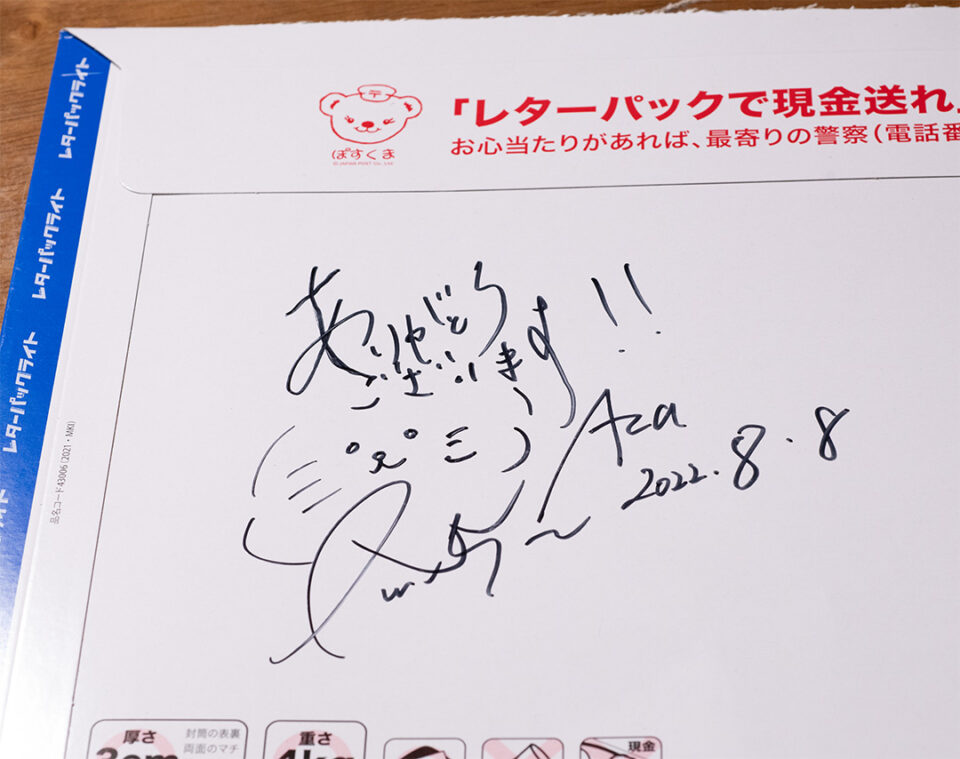 「レターパックで現金送れ」
お心当たりがあれば、最寄りの警察(電話番
ぽすくま
© JAPAN POST Co., Ltd.
レターパックライト
レターパックライト
レターパックライト
品名コード43006(2021・MKI)
ありがとう
ございます!!
Aza
2022.8.8
厚さ
3cm
封筒の表裏
両面のマチ
重さ
4kg
現金